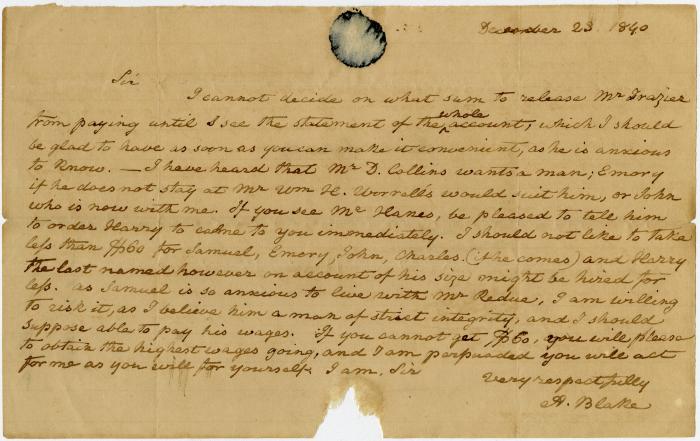 December 23 1840
Sir
I cannot decide on what sum to release Mr Frazier
from paying until I see the statement of the whole account, which I should
be glad to have as soon as you can make it convenient, as he is anxious
to know. — I have heard that Mr D. Collins wants a man; Emory
if he does not stay at Mr Wm H. Worrells would suit him, or John
who is now with me. If you see Mr Hanes, be pleased to tell him
to order Harry to come to you immediately. I should not like to take
less than $60 for Samuel, Emory, John, Charles (if he comes) and Harry
the last named however on account of his size might be hired for
less. as Samuel is so anxious to live with Mr Redue, I am willing
to risk it, as I believe him a man of strict integrity, and I should
suppose able to pay his wages. If you cannot get $60, you will please
to obtain the highest wages going, and I am perpuaded you will act
for me as you will for yourself. I am, Sir
Very respectfully
A. Blake